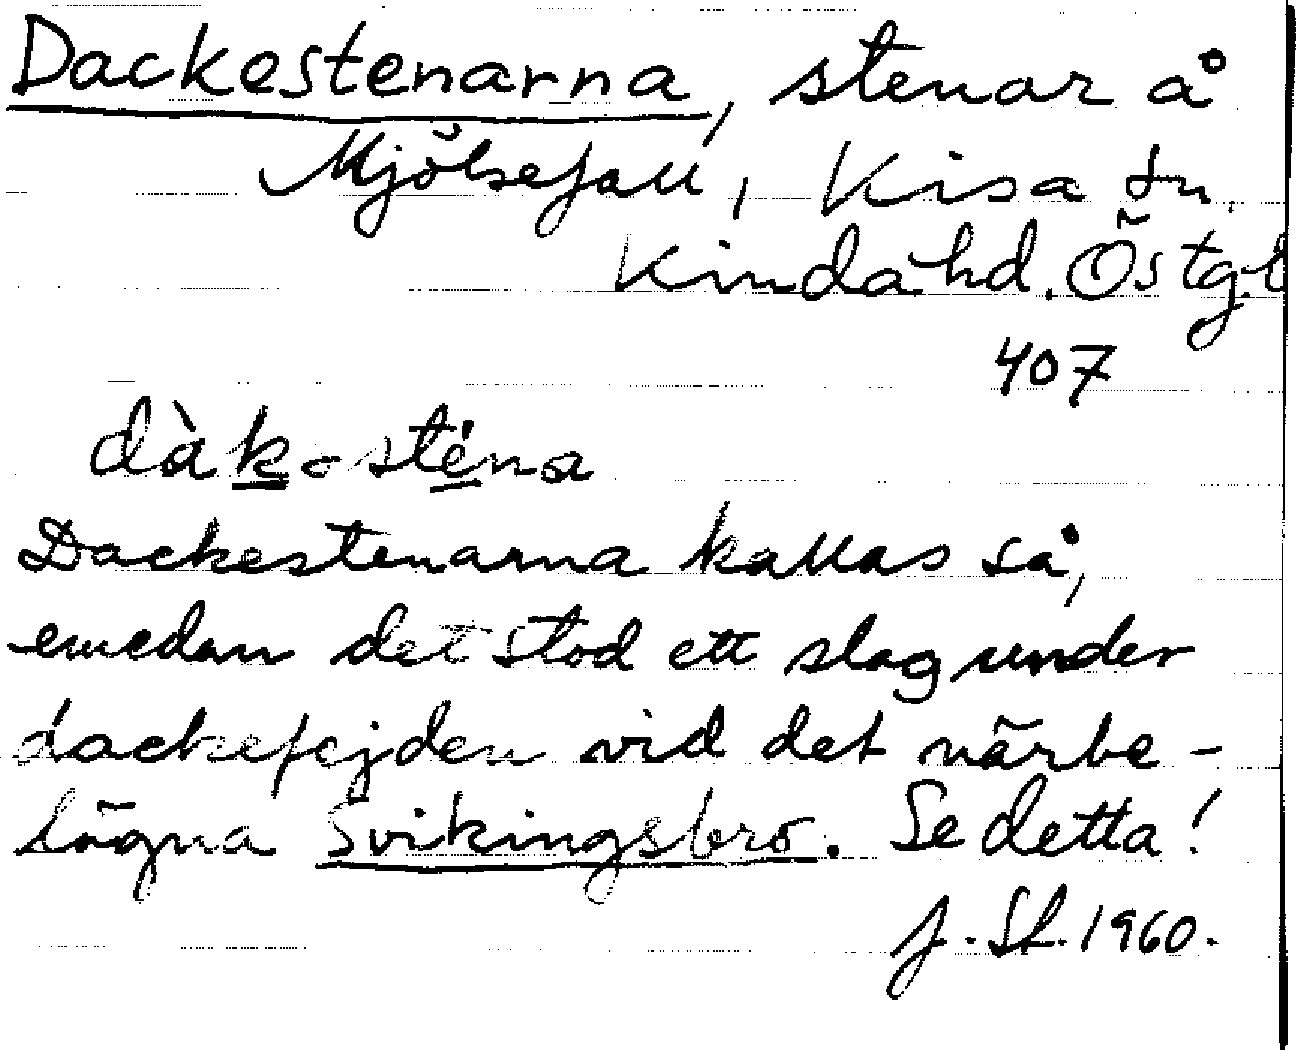 Dackestenarna, stenar å
Mjölsefall, Kisa sn,
Kinda hd. Östg.l
407
dàkɷsténa
Dackestenarna kallas så,
emedan det stod ett slag under
dackefejden vid det närbe-
lägna Svikingsbro. Se detta!
J. Sh. 1960.